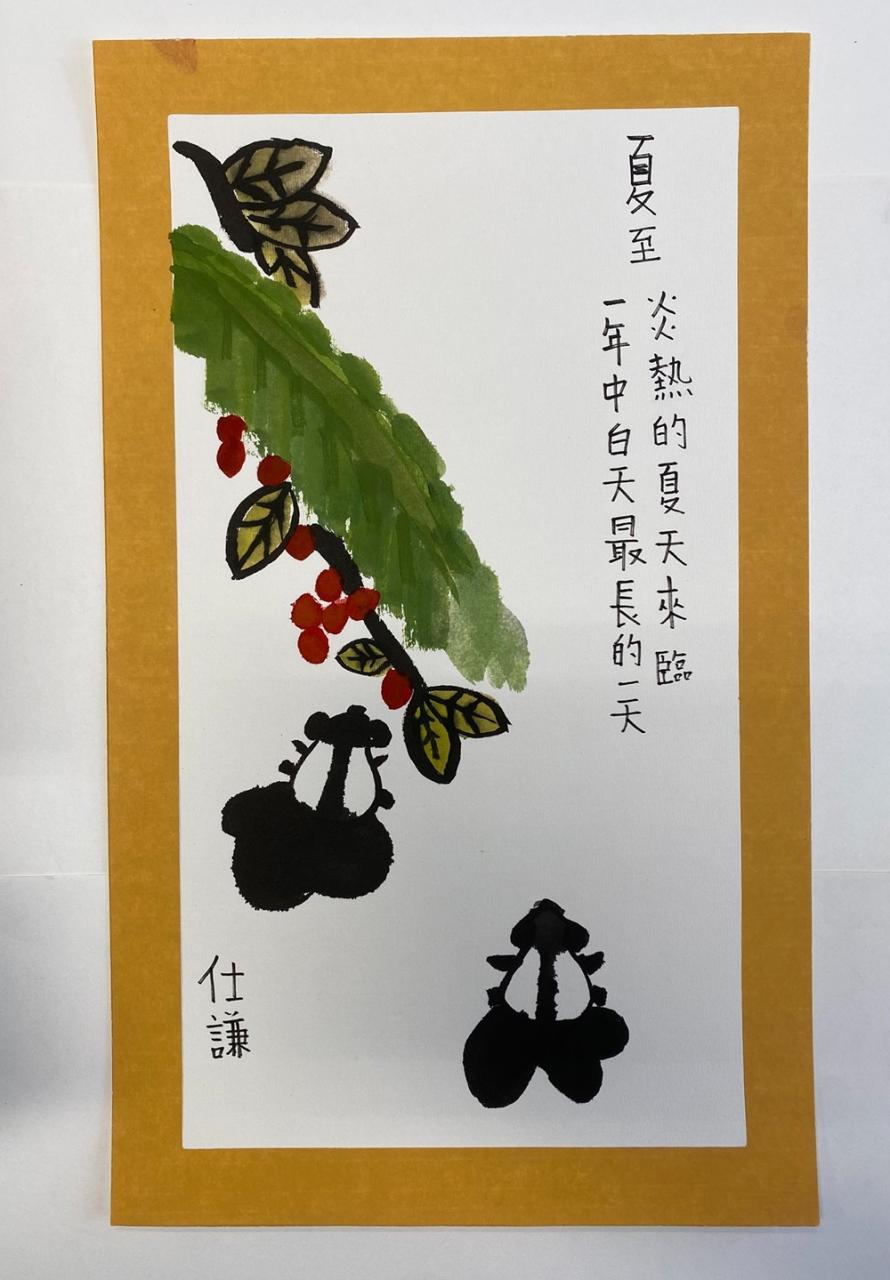 夏至
炎熱的夏天來臨
一年中白天最長的一天
仕謙